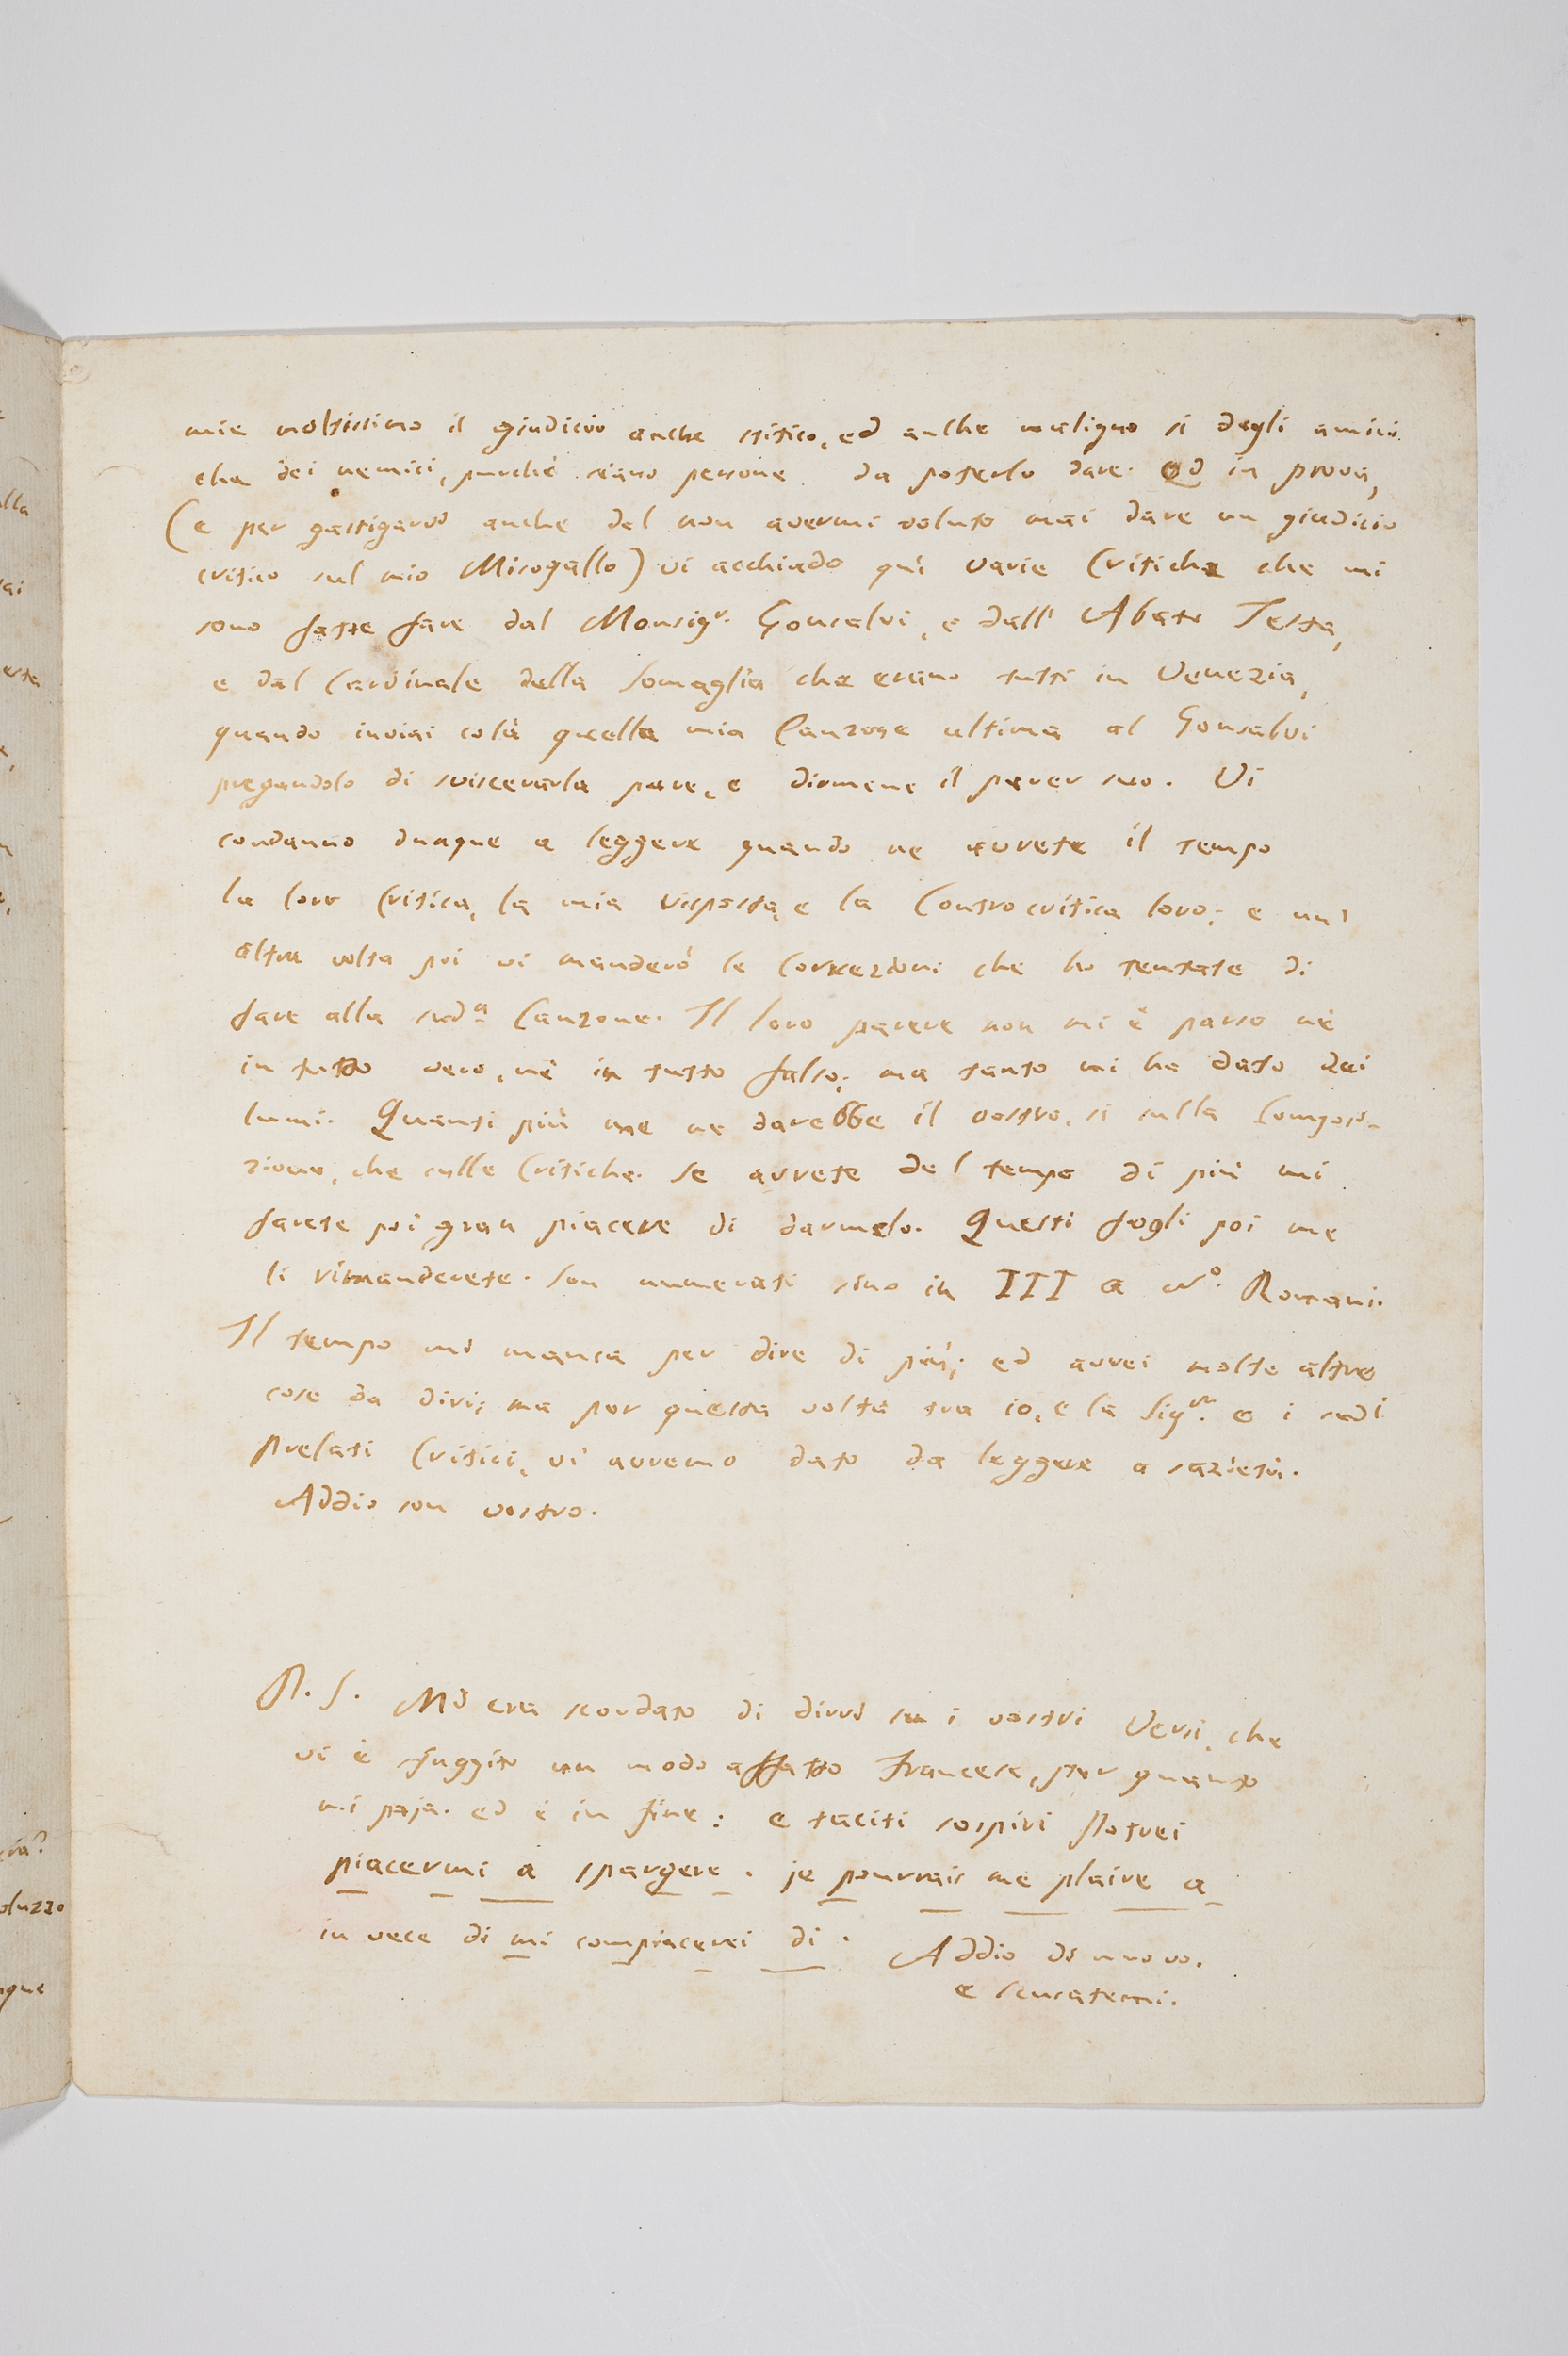 mie moltissimo il giudicio anche stitico, ed anche maligno sì degli amici
che dei nemici, purchè siano persone da poterlo dare. Ed in prova,
(e per gastigarvi anche del non avermi voluto mai dare un giudicio
critico sul mio Misogallo) vi acchiudo quì varie Critiche che mi
sono fatte fare dal Monsigr. Gonsalvi, e dall' Abate Testa,
e dal Cardinale della Somaglia che erano tutti in Venezia,
quando inviai colà quella mia Canzone ultima al Gonsalvi
pregandolo di sviscerarla pure, e dirmene il parer suo. Vi
condanno dunque a leggere quando ne avrete il tempo
la loro Critica, la mia risposta, e la Controcritica loro; e un'
altra volta poi vi manderò le Correzioni che ho tentate di
fare alla sudª Canzone. Il loro parere non mi è parso nè
in tutto vero, nè in tutto falso; ma tanto mi ha dato dei
lumi. Quanti più me ne darebbe il vostro, sì sulla Composi-
zione, che sulle Critiche. Se avrete del tempo di più mi
farete poi gran piacere di darmelo. Questi fogli poi me
li rimanderete. Son numerati sino in III a No. Romani.
Il tempo mi manca per dire di più; ed avrei molte altre
cose da dirvi; ma per questa volta tra io, e la Sigra. e i sudi
prelati Critici, vi avremo dato da leggere a sazietà.
Addio son vostro.
P. S. Mi era scordato di dirvi su i vostri Versi, che
vi è sfuggito un modo affatto Francese, per quanto
mi paja. ed è in fine: e taciti sospiri Potrei
piacermi a spargere. je pourrais me plaire a
in vece di mi compiacerei di. Addio di nuovo.
e scusatemi.